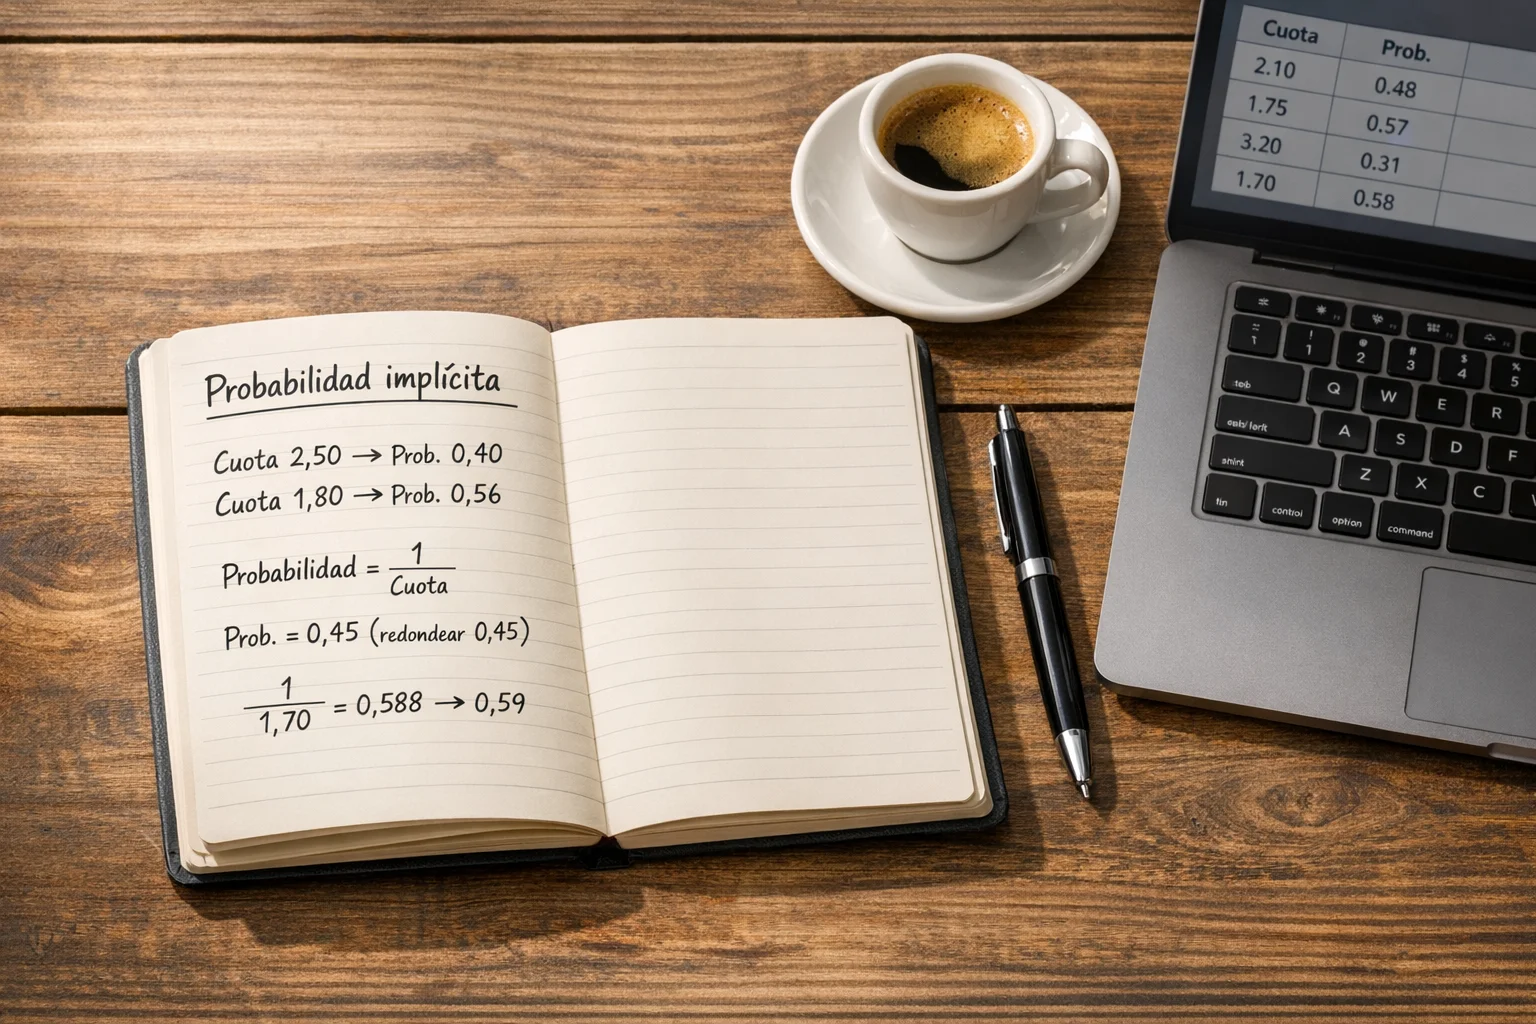 Probabilidad implícita
Cuota 2,50 → Prob. 0,40
Cuota 1,80 → Prob. 0,56
Probabilidad = 1 / Cuota
Prob. = 0,45 (redondear 0,45)
1 / 1,70 = 0,588 → 0,59
Cuota Prob.
2.10 0.48
1.75 0.57
3.20 0.31
1.70 0.58
! 1 @ 2 # 3 $ 4 % 5
tab Q W E R
A S D F
Z X C
fin control option command